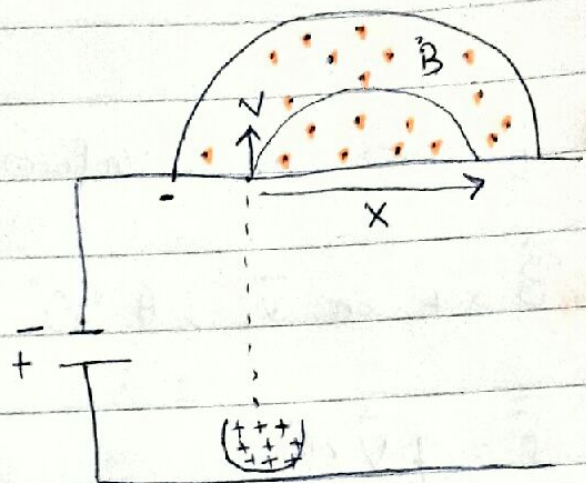 B
V
-
X
-
+
+ + +
+ + +
+ + +